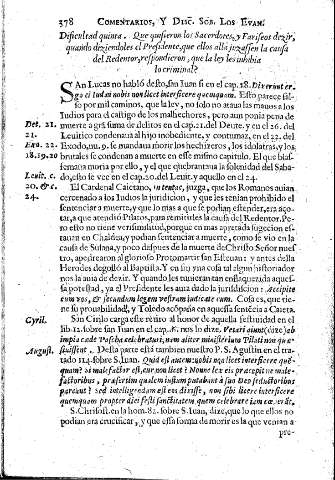 378 COMENTARIOS, Y DISC. SOB. LOS EVAM.
Dificultad quinta. Que quisieron los Sacerdotes, y Fariseos dezir,
quando diziendoles el Presidente, que ellos alla juzgassen la causa
del Redentor, respondieron, que la ley les inhibia
lo criminal?
SAn Lucas no habló desto, san Iuan si en el cap. 18. Dixerunt er-
go ei Iudæi nobis non licet interficere quemquam. Esto parece fal-
so por mil caminos, que la ley, no solo no ataua las manos a los
Iudios para el castigo de los malhechores, pero aun ponia pena de
Det. 21. muerte a grã suma de delitos en el cap. 21. del Deute, y en el 26. del
21. Leuitico condenan al hijo inobediente, y contumaz, en en 22. del
Exo. 22. Exodo, nu. 9. se mandaua morir los hechizeros, los idolatras, y los
18. 19. 20 brutales se condenan a muerte en esse mismo capitulo. El que blas-
femaua moria por ello, y el que quebrantaua la solenidad del Saba-
Leuit. c. do, esto se vee en el cap. 20. del Leuit. y aquello en el 24.
20. & c. El Cardenal Caietano, in tentac, juzga, que los Romanos auian
24. cercenado a los Iudios la juridicion, y que les tenian prohibido el
sentenciar a muerte, y que lo mas a que se podian estender, era aço-
tar, a que atendió Pilatos, para remitirles la causa del Redentor. Pe-
ro esto no tiene verisimilitud, porque en mas apretada sugecion es-
tauan en Chaldea, y podian sentenciar a muerte, como se vio en la
causa de Susana, y poco despues de la muerte de Christo Señor nues-
tro, apedrearon al glorioso Protomartir san Esteuan: y antes della
Herodes degolló al Baptista. Y en su misma cosa tal algun historiador
nos la auia de dezir. Y quando les tuuieran tan enflaquezida aquessa
potestad, ya el Presidente les auia dado la juridicion: Accipite
eum vos, & secundum legem vestram iudicate eum. Cosa es, que tie-
ne su prouabilidad, y Toledo acõpaña en aquessa sentẽcia a Caieta.
Cyril. San Cirilo carga este retiro al honor de aquella festiuidad en el
lib. 12. sobre san Iuan en el cap. nos lo dize. Vetari aiunt (dize) ab
impia cæde Pascha celebraturi, non aliter ministerium Pilati non quæ-
August. siuissent. Desta parte está tambien nuestro P. S. Agustin en el tra-
tado 114. sobre S. Iuan. Quid est quem nobis nõ licet interficere quẽ-
quam? si malefactor est, cur non licet? Nonne lex eis præcepit ne male-
factoribus, præsertim qualem istum putabant à suo Deo seductoribus
parcant? sed intelligendum est eos dixisse, non sibi licere interficere
quemquam propter diei festi sanctitatem quem celebrare iam cœperãt,
S. Chrisost. en la hom. 82. sobre S. Iuan, dize, que lo que ellos no
podian era crucificar, y que essa forma de morir es la que venian a
pre-